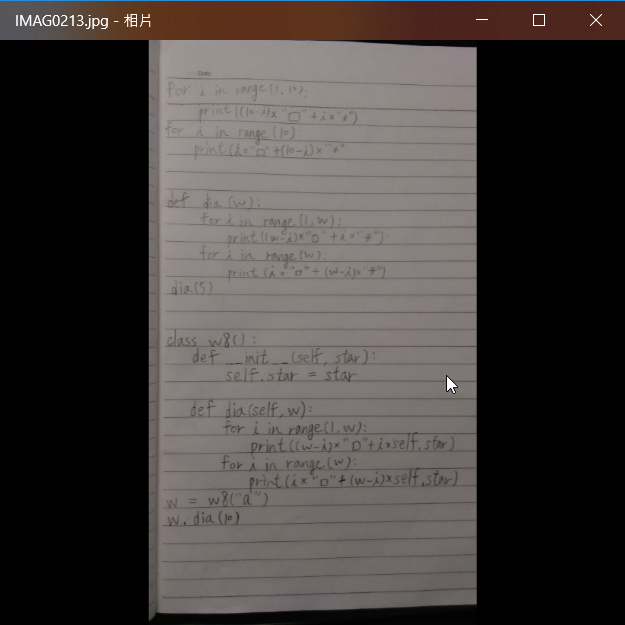 IMAG0213.jpg - 相片
Date
for i in range(1, 10):
print((10-i)×"□"+i×"*")
for i in range(10):
print(i×"□"+(10-i)×"*"
def dia(w):
for i in range(1, w):
print((w-i)×"□"+i×"*")
for i in range(w):
print(i×"□"+(w-i)×"*")
dia(5)
class w8():
def __init__(self, star):
self.star = star
def dia(self, w):
for i in range(1, w):
print((w-i)×"□"+i×self.star)
for i in range(w):
print(i×"□"+(w-i)×self.star)
w = w8("a")
w.dia(10)